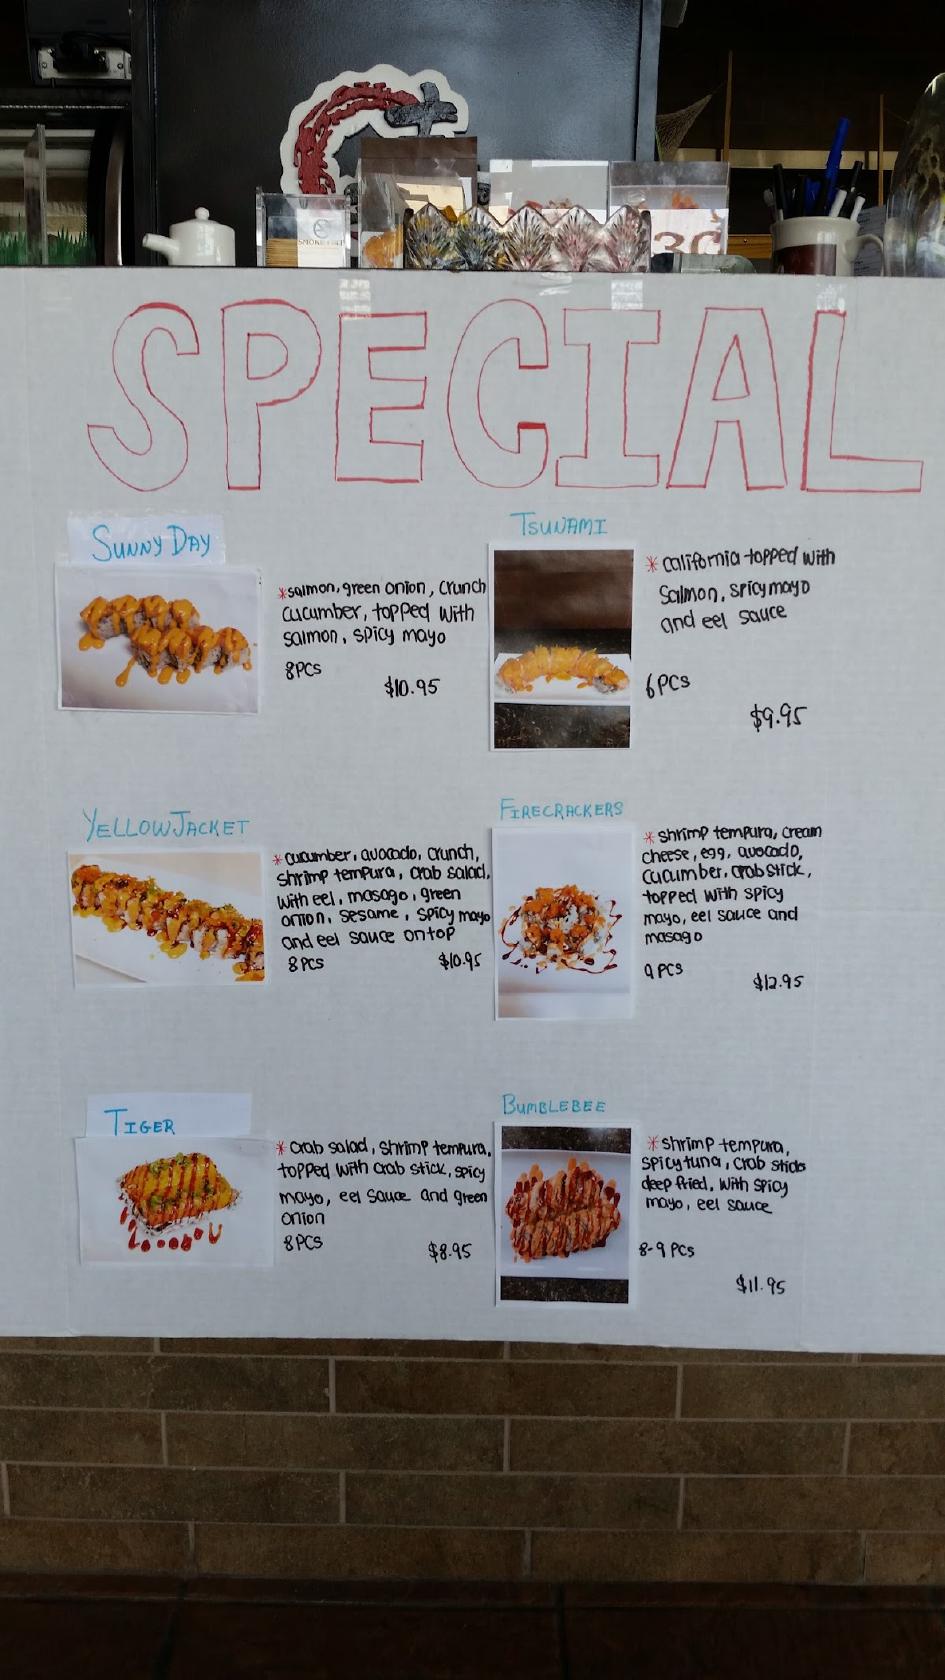 SPECIAL
SUNNY DAY
*salmon, green onion, crunch
cucumber, topped with
salmon, spicy mayo
8PCS
$10.95
TSUNAMI
*california topped with
salmon, spicy mayo
and eel sauce
6PCS
$9.95
YELLOW JACKET
*cucumber, avocado, crunch,
shrimp tempura, crab salad,
with eel, masago, green
onion, sesame, spicy mayo
and eel sauce on top
8PCS
$10.95
FIRECRACKERS
*shrimp tempura, cream
cheese, egg, avocado,
cucumber, crab stick,
topped with spicy
mayo, eel sauce and
masago
9PCS
$12.95
TIGER
*crab salad, shrimp tempura,
topped with crab stick, spicy
mayo, eel sauce and green
onion
8PCS
$8.95
BUMBLEBEE
*shrimp tempura,
spicy tuna, crab stick
deep fried, with spicy
mayo, eel sauce
8-9 PCS
$11.95